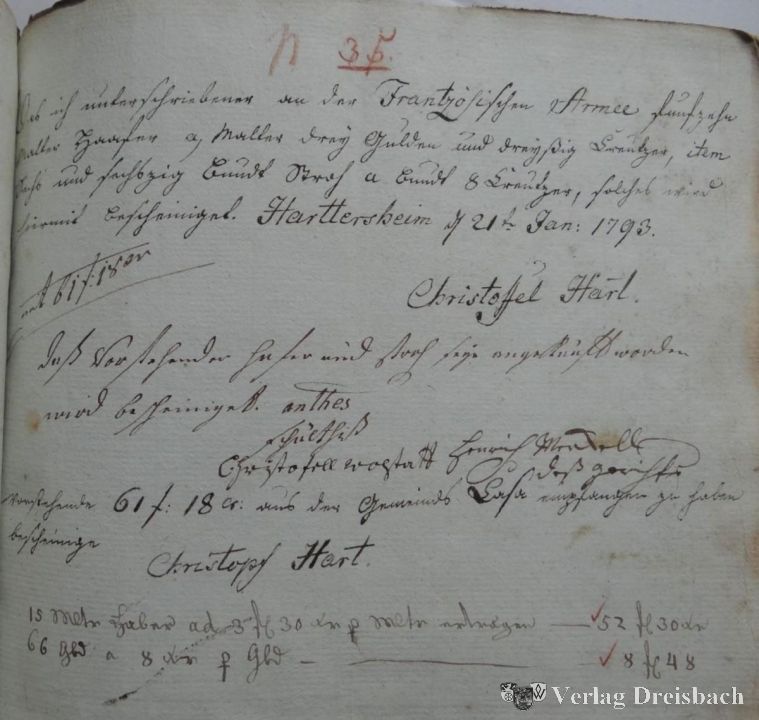 N 35.
Das ich unterschriebener an der Frantzösischen Armee funfzehn
Malter Haafer a, Malter drey Gulden und dreyßig Creutzer, item
Sechs und sechszig Bundt Stroh a bundt 8 Creutzer, solches wird
hiermit bescheiniget. Harttersheim d 21t Jan: 1793.
61 f: 18 xr
Christoffel Hart.
daß Vorstehender hafer und stroh seye angekauft worden
wird bescheiniget. anthes
schultheß
Christofell wolstatt Henrich
deß gerichts
Vorstehende 61 f: 18 cr: aus der Gemeinds Casa empfangen zu haben
bescheinige
Christoph Hart.
15 Mltr Haber ad 3 fl 30 xr p Mltr ertragen — 52 fl 30 xr
66 Gbd a 8 xr p Gbd — 8 fl 48
Verlag Dreisbach